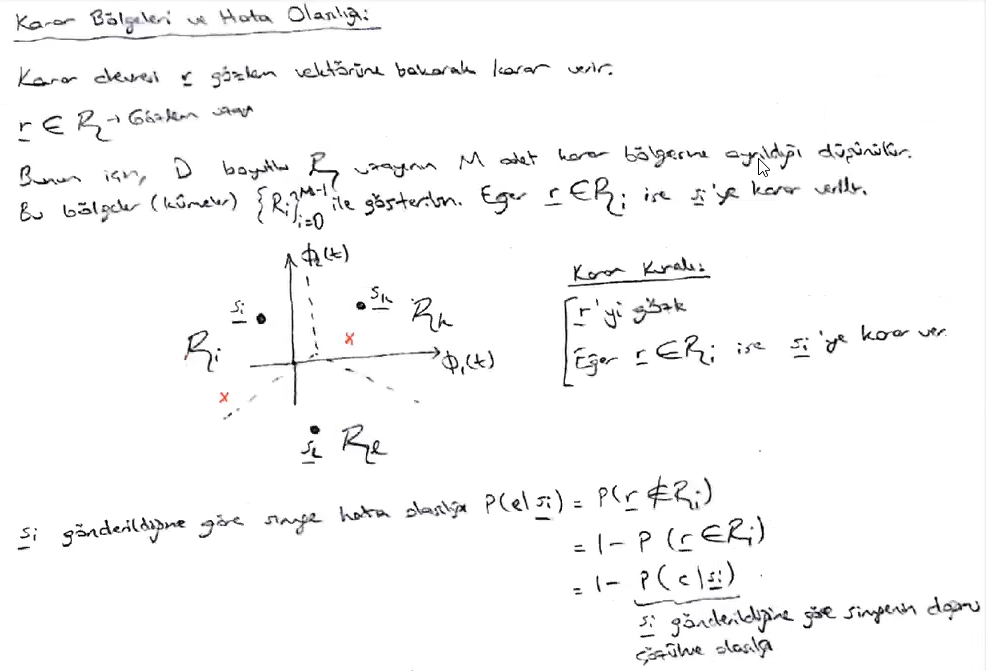 Karar Bölgeleri ve Hata Olasılığı:
Karar devresi r gözlem vektörüne bakarak karar verir.
r ∈ R → Gözlem uzayı
Bunun için, D boyutlu R uzayının M adet karar bölgesine ayrıldığı düşünülür.
Bu bölgeler (kümeler) {R_i}_{i=0}^{M-1} ile gösterilsin. Eğer r ∈ R_i ise s_i'ye karar verilir.
ϕ_2(t)
s_i
s_k R_k
R_i
x
x
ϕ_1(t)
s_l R_l
Karar Kuralı:
r'yi gözle
Eğer r ∈ R_i ise s_i'ye karar ver
s_i gönderildiğine göre simge hata olasılığı P(e|s_i) = P(r ∉ R_i)
= 1 - P(r ∈ R_i)
= 1 - P(c|s_i)
s_i gönderildiğine göre simgenin doğru
çözülme olasılığı